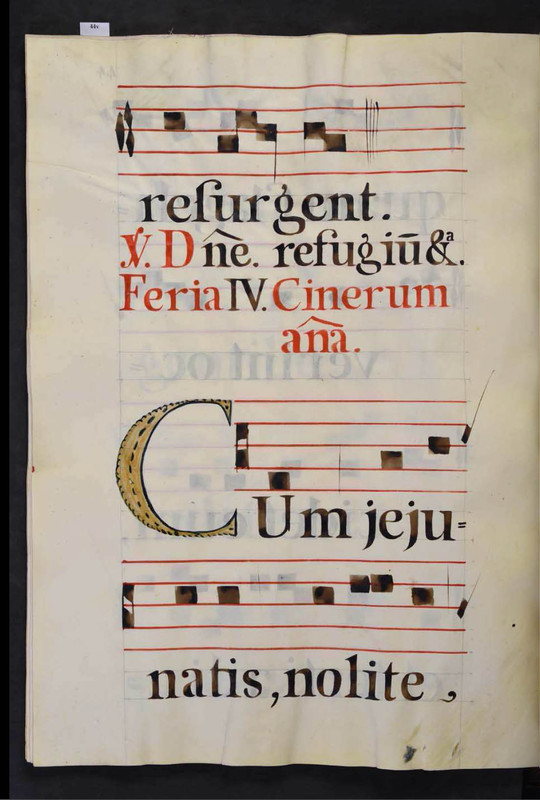 44v
reſurgent.
℣. Dn̄e. refugiū &ª.
Feria IV. Cinerum
anã.
Cum jeju=
natis, nolite,